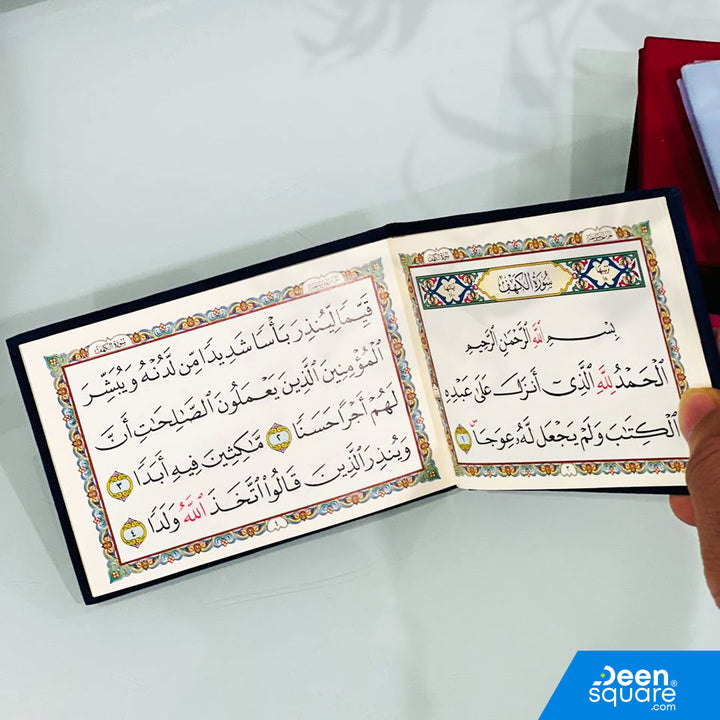 سُورَةُ الْكَهْفِ
بِسْمِ اللَّهِ الرَّحْمَٰنِ الرَّحِيمِ
الْحَمْدُ لِلَّهِ الَّذِي أَنزَلَ عَلَىٰ عَبْدِهِ
الْكِتَابَ وَلَمْ يَجْعَل لَّهُ عِوَجًا ۜ ١
٢
سُورَةُ الْكَهْفِ
قَيِّمًا لِّيُنذِرَ بَأْسًا شَدِيدًا مِّن لَّدُنْهُ وَيُبَشِّرَ
الْمُؤْمِنِينَ الَّذِينَ يَعْمَلُونَ الصَّالِحَاتِ أَنَّ
لَهُمْ أَجْرًا حَسَنًا ٢ مَّاكِثِينَ فِيهِ أَبَدًا ٣
وَيُنذِرَ الَّذِينَ قَالُوا اتَّخَذَ اللَّهُ وَلَدًا ٤
Deen
square®
.com